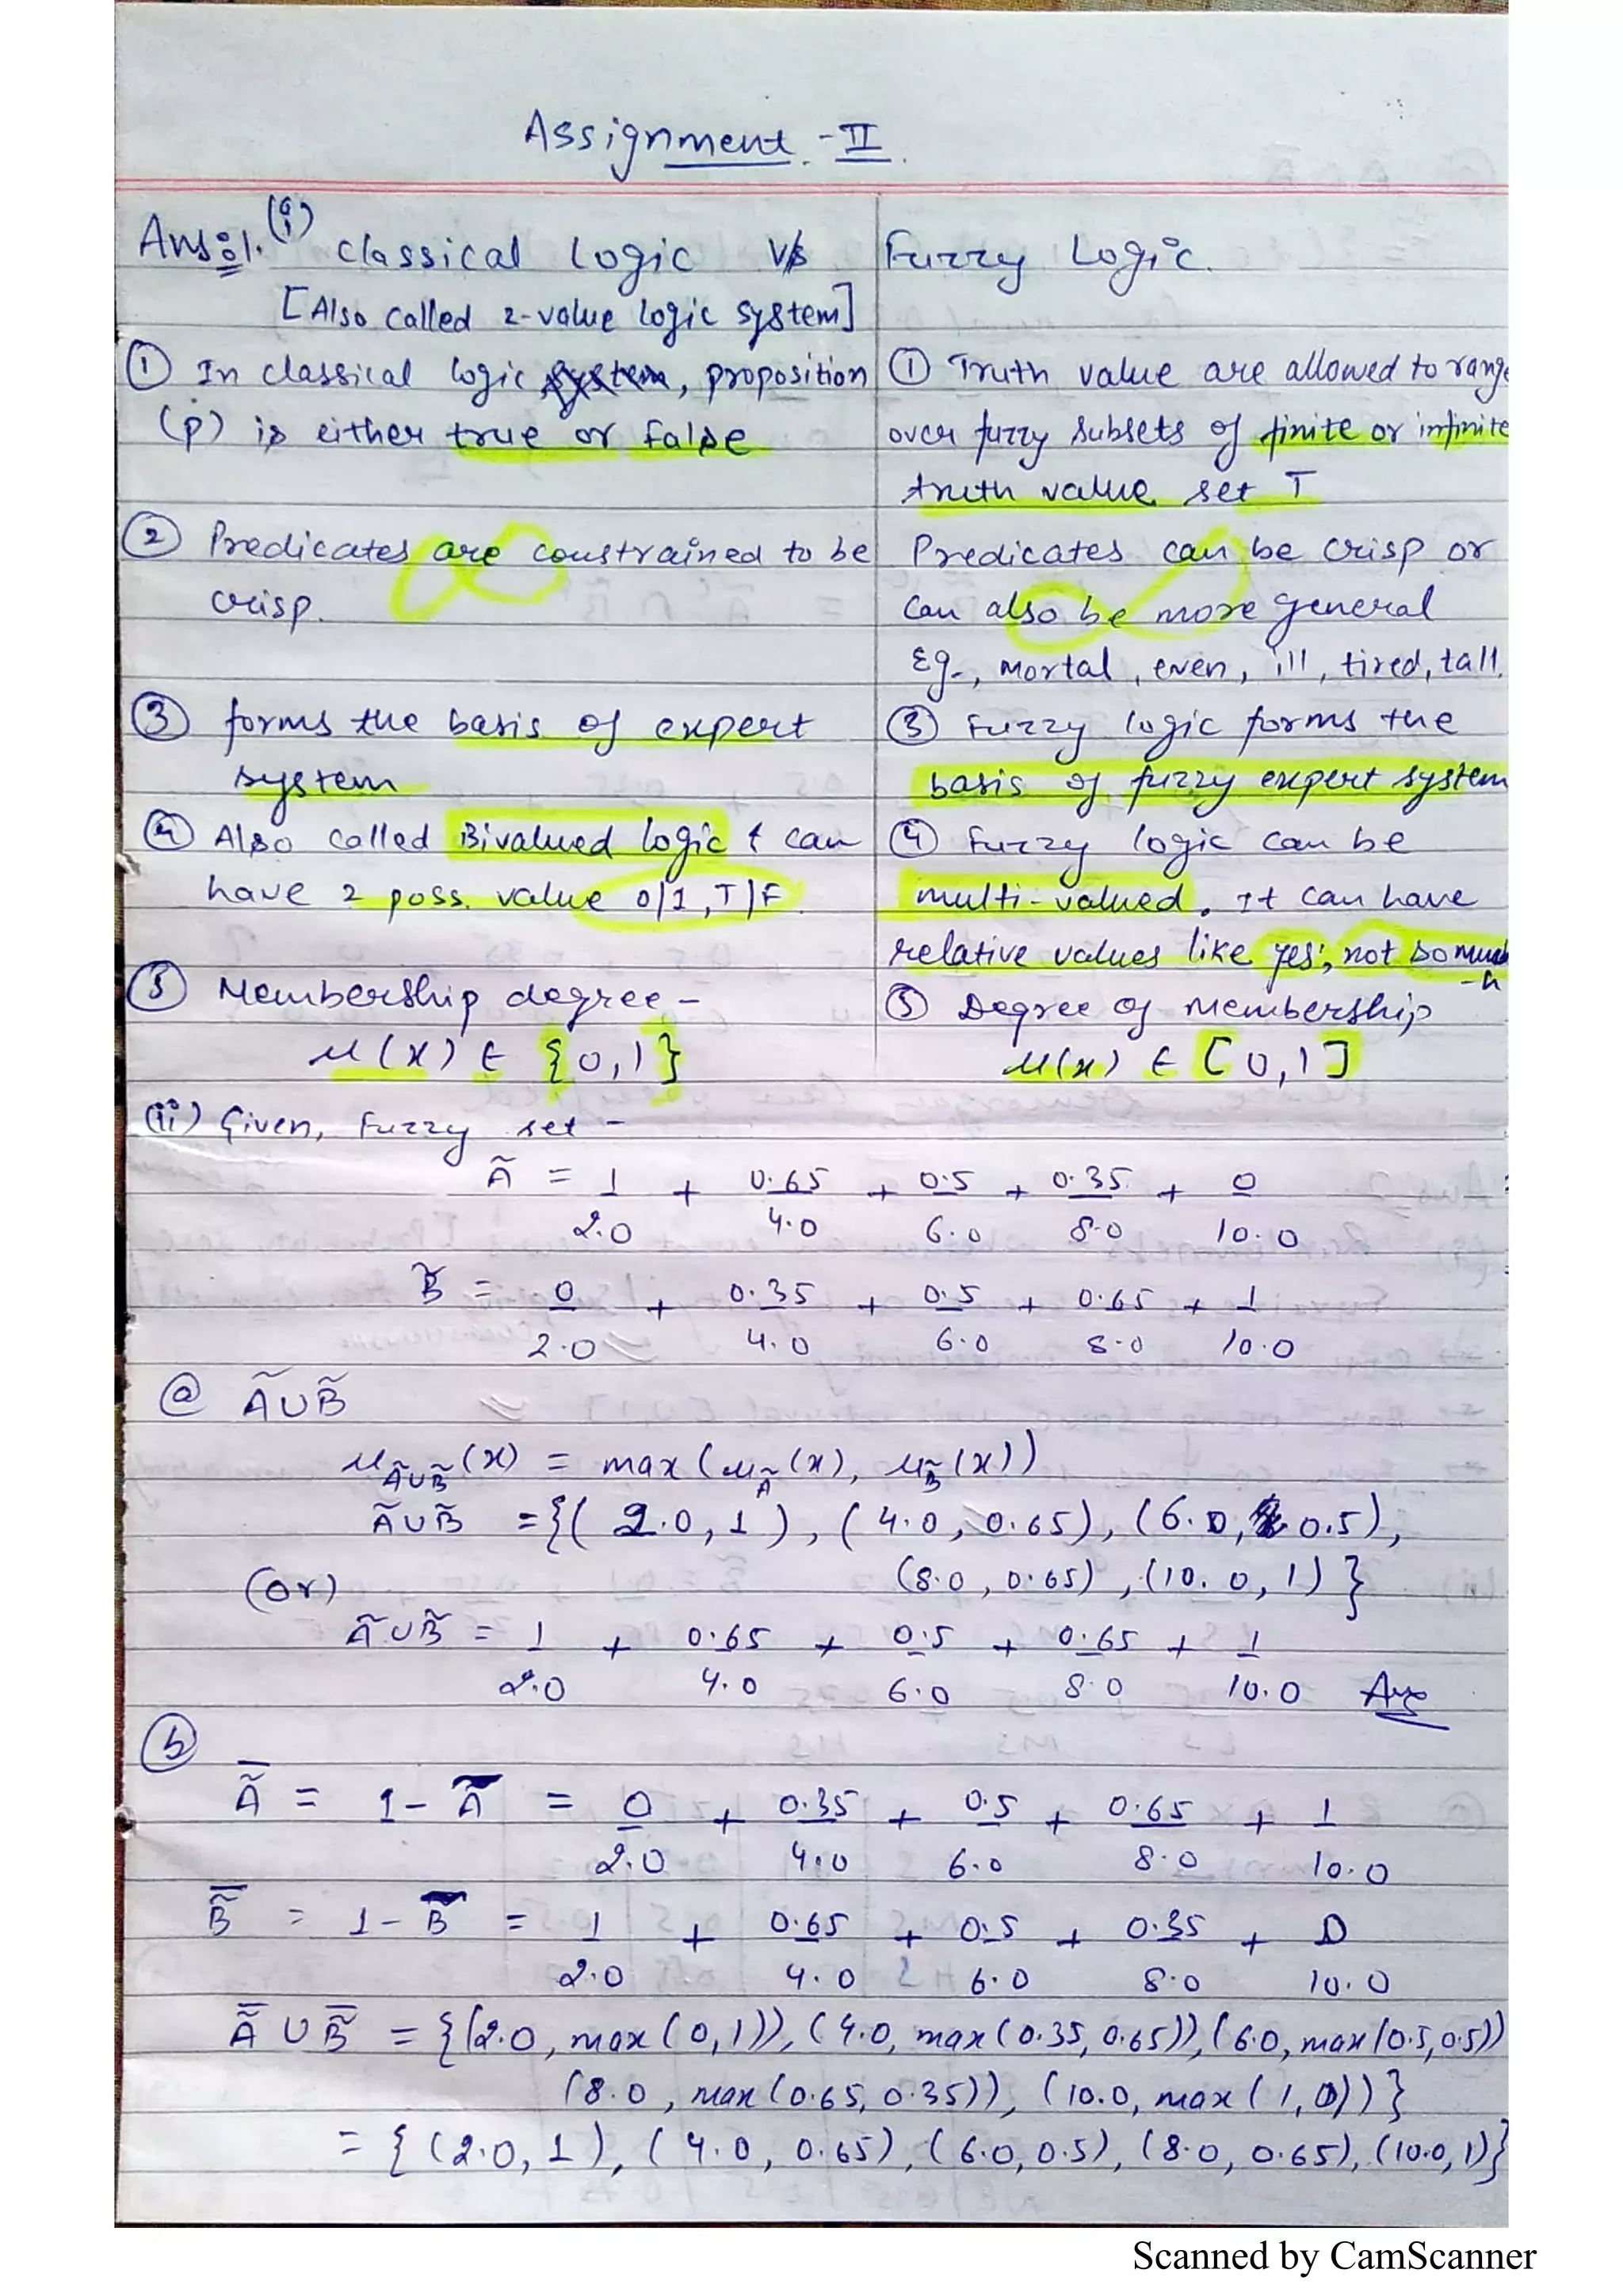 Assignment - II.
Ans:1. (i) Classical Logic v/s
[Also called 2-value logic system]
① In classical logic system, proposition
(p) is either true or false
② Predicates are constrained to be
crisp.
③ forms the basis of expert
system
④ Also called Bivalued logic & can
have 2 poss. value 0/1, T/F.
⑤ Membership degree -
μ(x) ∈ {0,1}
Fuzzy Logic.
① Truth value are allowed to range
over fuzzy subsets of finite or infinite
truth value set T
Predicates can be crisp or
can also be more general
Eg., mortal, even, ill, tired, tall.
③ Fuzzy logic forms the
basis of fuzzy expert system
④ Fuzzy logic can be
multi-valued. It can have
relative values like yes, not so much
-h
⑤ Degree of membership
μ(x) ∈ [0,1]
(ii) Given, Fuzzy set -
Ã = 1 + 0.65 + 0.5 + 0.35 + 0
2.0 4.0 6.0 8.0 10.0
B̃ = 0 + 0.35 + 0.5 + 0.65 + 1
2.0 4.0 6.0 8.0 10.0
ⓐ Ã∪B̃
μÃ∪B̃(x) = max(μÃ(x), μB̃(x))
Ã∪B̃ = {(2.0, 1), (4.0, 0.65), (6.0, 0.5),
(8.0, 0.65), (10.0, 1)}
(Or)
Ã∪B̃ = 1 + 0.65 + 0.5 + 0.65 + 1
2.0 4.0 6.0 8.0 10.0 Ans
ⓑ
Ã̅ = 1 - Ã = 0 + 0.35 + 0.5 + 0.65 + 1
2.0 4.0 6.0 8.0 10.0
B̃̅ = 1 - B̃ = 1 + 0.65 + 0.5 + 0.35 + 0
2.0 4.0 6.0 8.0 10.0
Ã̅ ∪ B̃̅ = {(2.0, max(0,1)), (4.0, max(0.35, 0.65)), (6.0, max(0.5,0.5))
(8.0, max(0.65, 0.35)), (10.0, max(1,0))}
= {(2.0, 1), (4.0, 0.65), (6.0, 0.5), (8.0, 0.65), (10.0, 1)}
Scanned by CamScanner